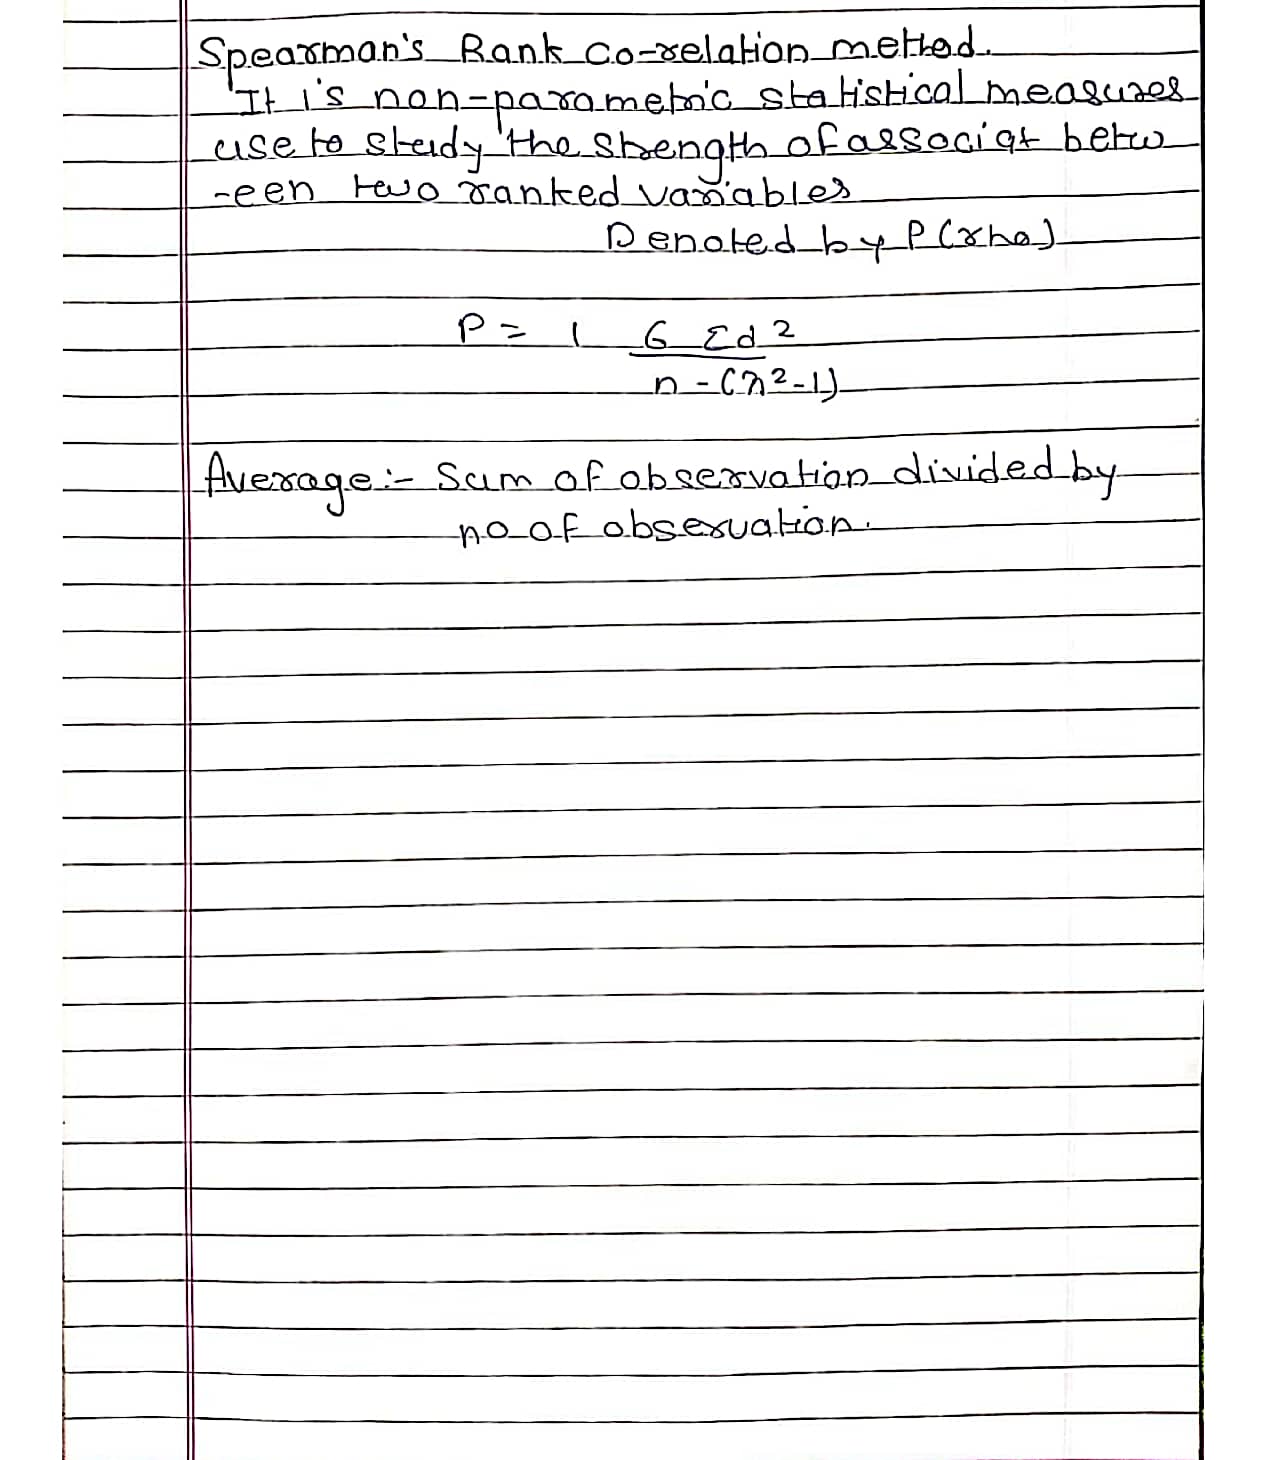 Spearman's Rank co-relation method.
It is non-parametric statistical measures
use to study the strength of associat betw
-een two ranked variables
Denoted by P (rho)
P = 1 6 Σd²
n - (n²-1)
Average :- Sum of observation divided by
no of observation.